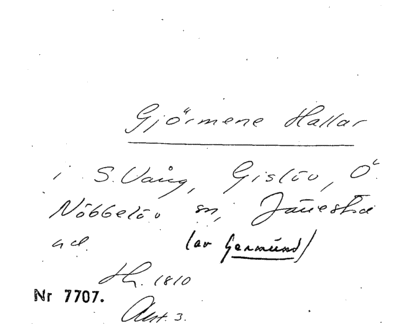 Gjörmene Hallar
i S. Vång, Gislöv, Ö
Nöbbelöv sn, Järrestad
hd. (av Germund)
H. 1810
Nr 7707.
Akt. 3.